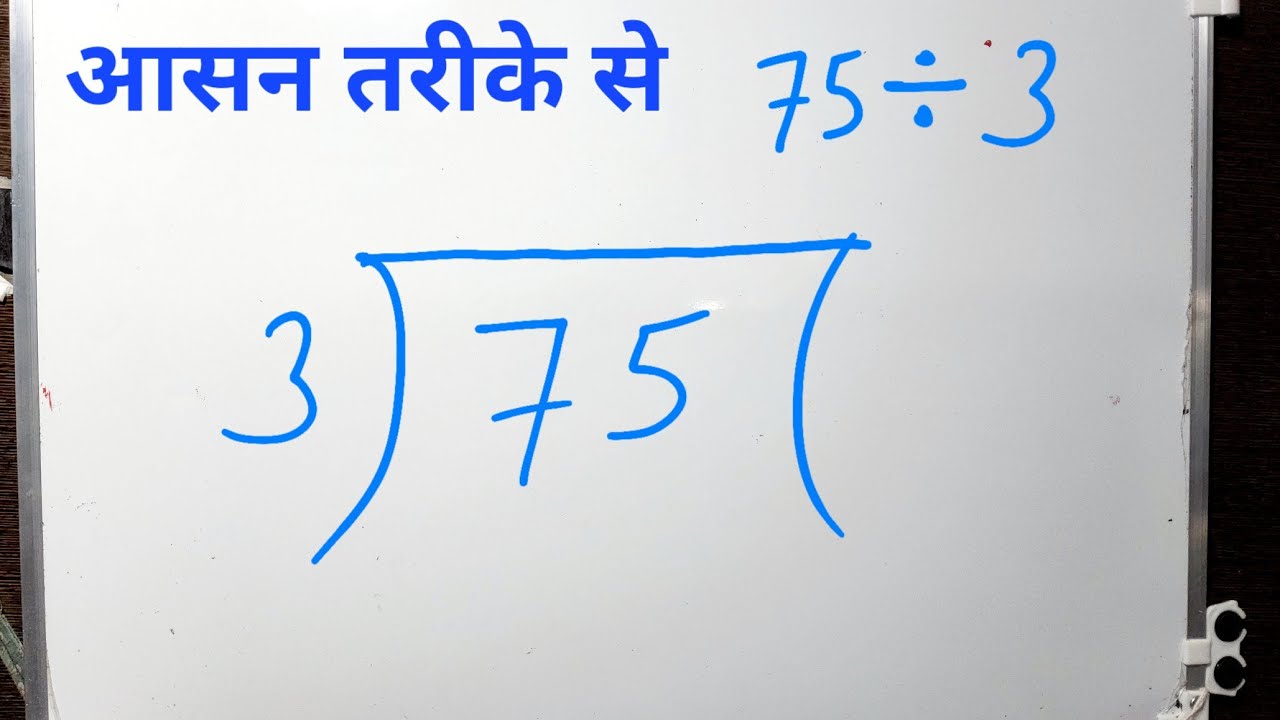 आसन तरीके से 75÷3
3)75(